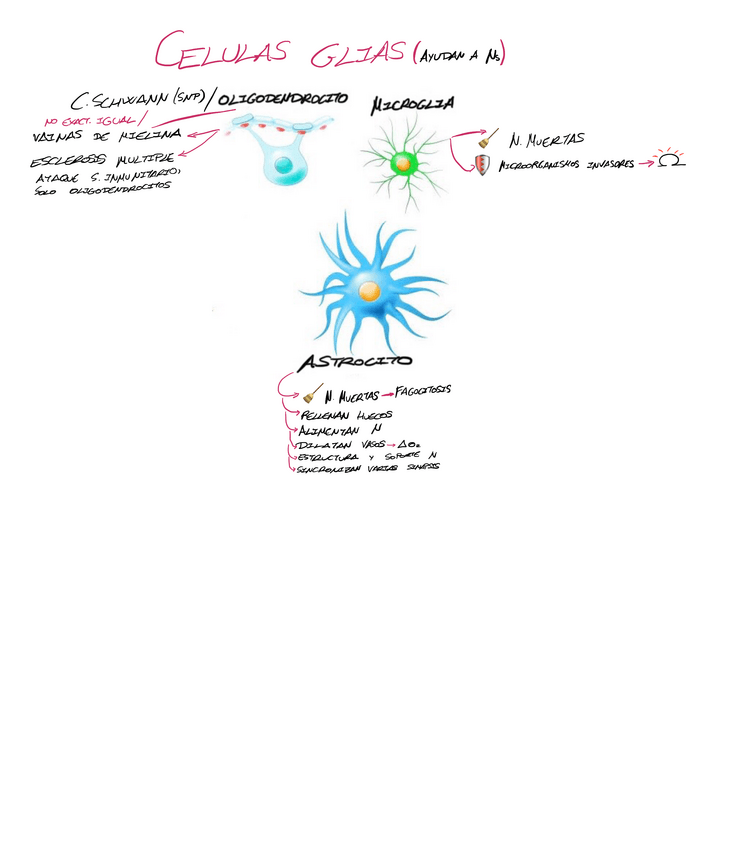 CELULAS GLIAS (AYUDAN A Ns)
C. SCHWANN (SNP) / OLIGODENDROCITO
NO EXACT. IGUAL /
VAINAS DE MIELINA
ESCLEROSIS MULTIPLE
ATAQUE S. INMUNITARIO,
SOLO OLIGODENDROCITOS
MICROGLIA
N. MUERTAS
MICROORGANISMOS INVASORES →
ASTROCITO
N. MUERTAS → FAGOCITOSIS
RELLENAN HUECOS
ALIMENTAN N
DILATAN VASOS → ΔO₂
ESTRUCTURA Y SOPORTE N
SINCRONIZAN VARIAS SINAPSIS